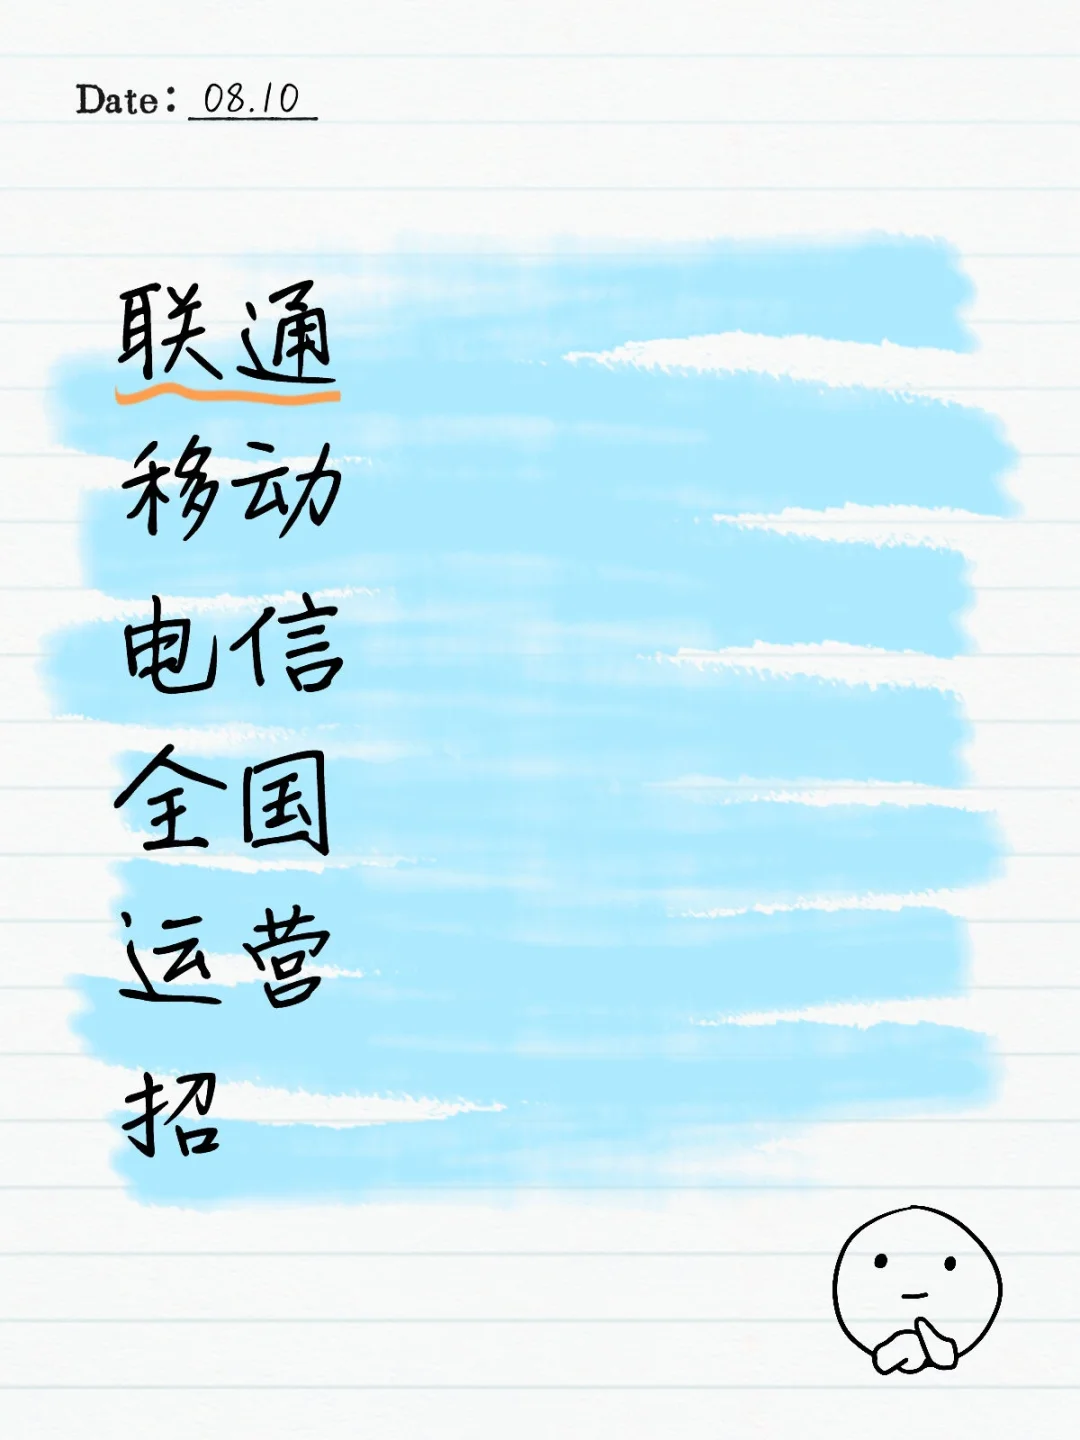 Date: 08.10
联通
移动
电信
全国
运营
招